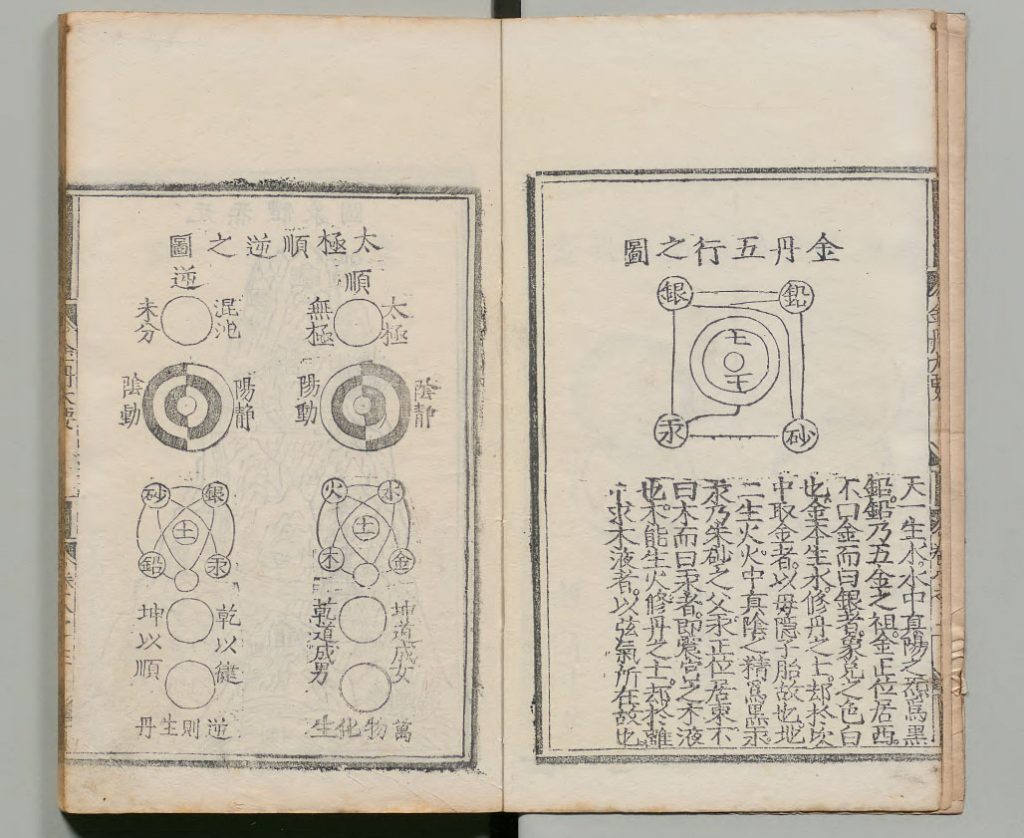 金丹五行之圖
鉛
銀
土
砂
汞
天一生水。水中真陽之炁爲黑
鉛。鉛乃五金之祖。金正位居西。
不曰金而曰銀者。象兌之色白
也。金本生水。修丹之士。却於坎
中取金者。以母隱子胎故也。地
二生火。火中真陰之精爲黑汞。
汞乃朱砂之父。汞正位居東。不
曰木而曰汞者。即震宮之木液
也。木能生火。修丹之士。却於離
中求木液者。以弦氣所在故也。
太極順逆之圖
順
太極
無極
陰静
陽動
水
火
土
金
木
坤道成女
乾道成男
萬物化生
逆
混沌
未分
陽静
陰動
銀
砂
土
汞
鉛
乾以健
坤以順
逆則生丹
金丹大要